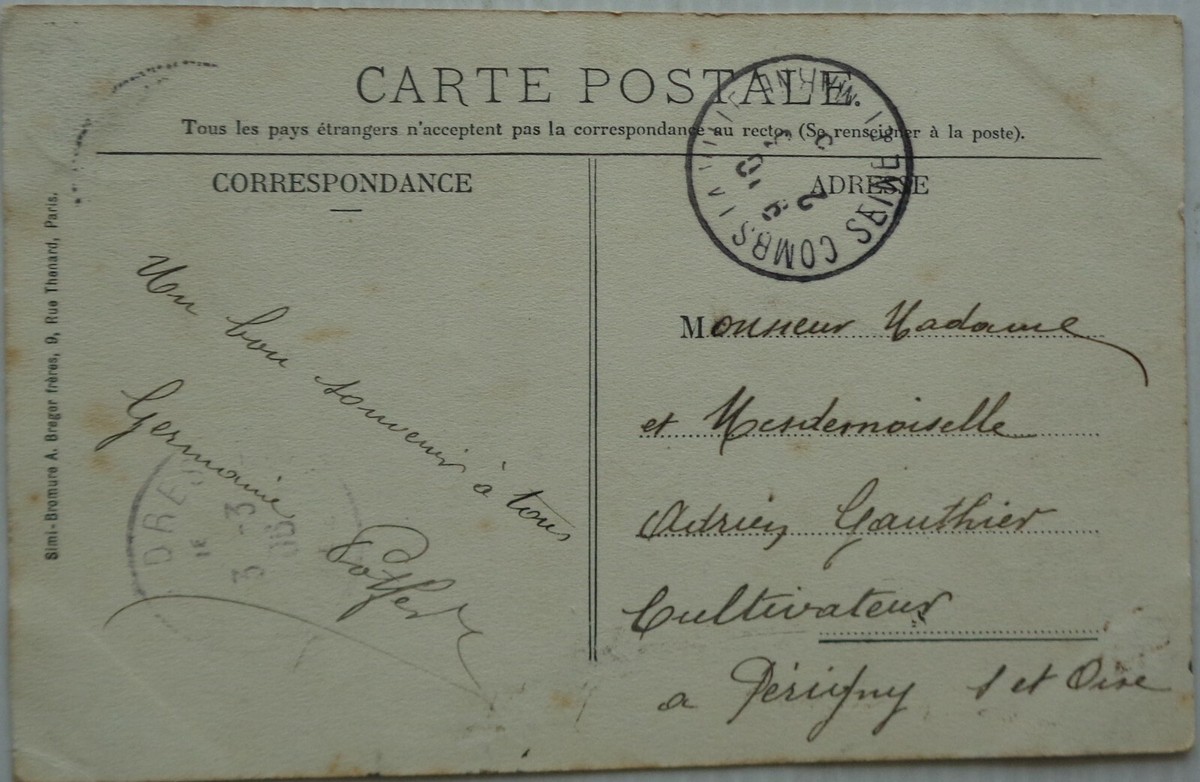 CARTE POSTALE.
Tous les pays étrangers n'acceptent pas la correspondance au recto. (Se renseigner à la poste).
CORRESPONDANCE
ADRESSE
Simi-Bromure A. Breger frères, 9, Rue Thenard, Paris.
Un bon souvenir à tous
Germaine
COMBS LA VILLE SEINE ET MARNE
Monsieur Madame
et Mesdemoiselle
Adrien Gauthier
Cultivateur
a Périgny S et Oise
DRE
3 -3